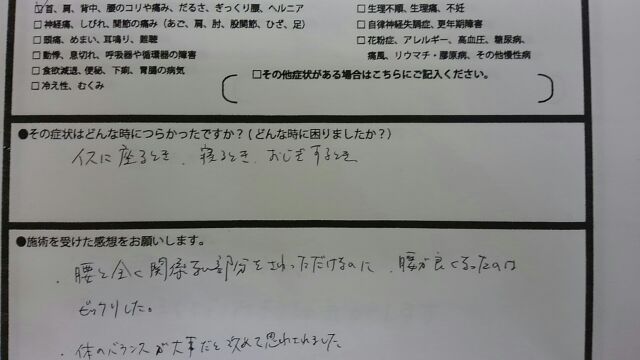 ☑首、肩、背中、腰のコリや痛み、だるさ、ぎっくり腰、ヘルニア
□神経痛、しびれ、関節の痛み（あご、肩、肘、股関節、ひざ、足）
□頭痛、めまい、耳鳴り、難聴
□動悸、息切れ、呼吸器や循環器の障害
□食欲減退、便秘、下痢、胃腸の病気
□冷え性、むくみ
□生理不順、生理痛、不妊
□自律神経失調症、更年期障害
□花粉症、アレルギー、高血圧、糖尿病、
痛風、リウマチ・膠原病、その他慢性病
□その他症状がある場合はこちらにご記入ください。
●その症状はどんな時につらかったですか？（どんな時に困りましたか？）
イスに座るとき、寝るとき、おじぎするとき
●施術を受けた感想をお願いします。
・腰と全く関係ない部分をさわっただけなのに、腰が良くなったのは
ビックリした。
・体のバランスが大事だと改めて思わされました